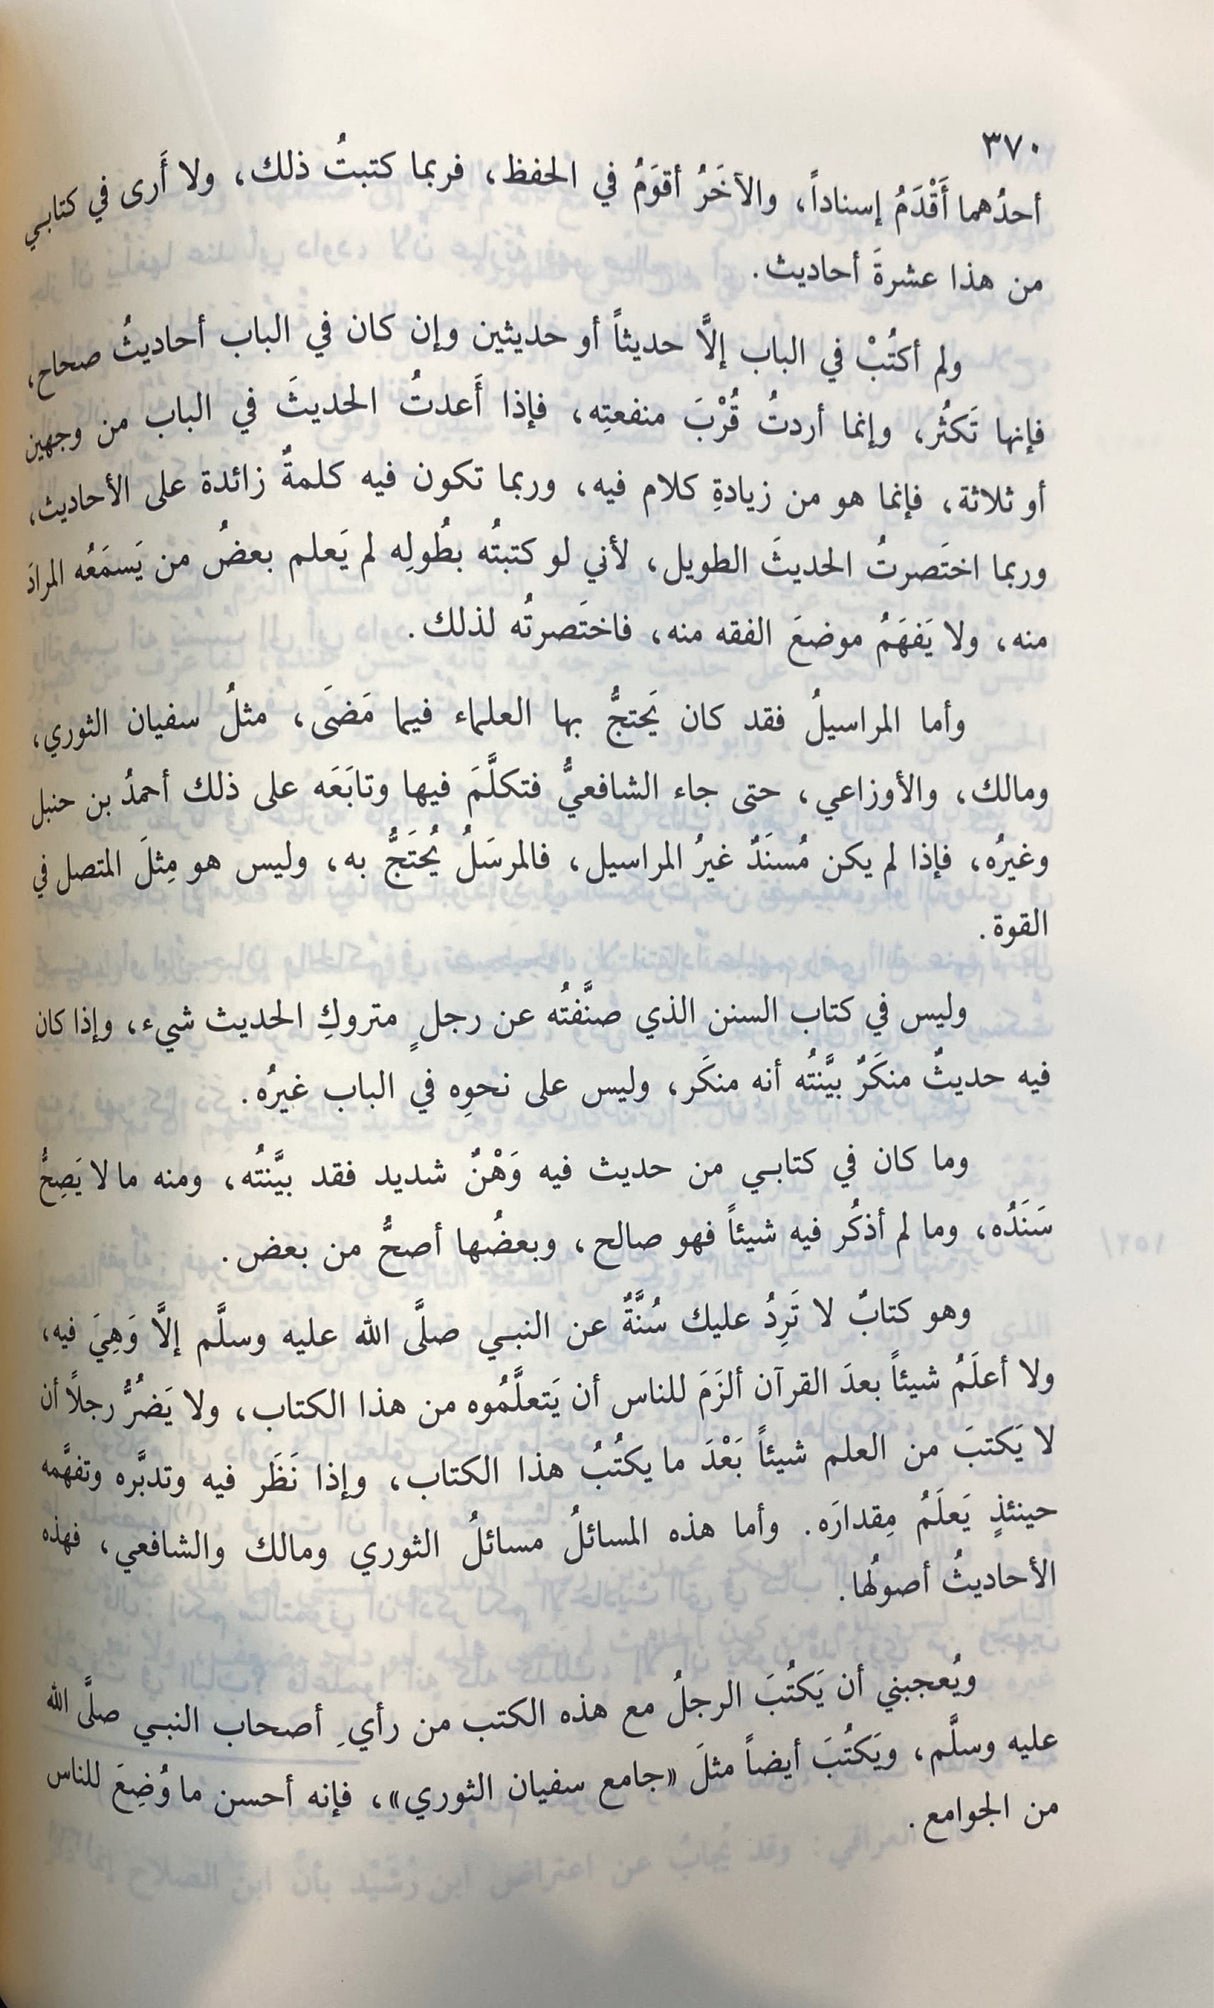 ٣٧٠
أحدُهما أَقْدَمُ إسناداً، والآخَرُ أقوَمُ في الحفظ، فربما كتبتُ ذلك، ولا أَرى في كتابي
من هذا عشرةَ أحاديث.
ولم أكتُبْ في الباب إلَّا حديثاً أو حديثين وإن كان في الباب أحاديثُ صحاح،
فإنها تَكثُر، وإنما أردتُ قُرْبَ منفعتِه، فإذا أَعدتُ الحديثَ في الباب من وجهين
أو ثلاثة، فإنما هو من زيادةِ كلام فيه، وربما تكون فيه كلمةٌ زائدة على الأحاديث،
وربما اختَصرتُ الحديثَ الطويل، لأني لو كتبتُه بطُولِه لم يَعلم بعضُ من يَسمَعُه المرادَ
منه، ولا يَفهَمُ موضعَ الفقه منه، فاختَصرتُه لذلك.
وأما المراسيلُ فقد كان يَحتجُّ بها العلماء فيما مَضَى، مثلُ سفيان الثوري،
ومالك، والأوزاعي، حتى جاء الشافعيُّ فتكلَّمَ فيها وتابَعَه على ذلك أحمدُ بن حنبل
وغيرُه، فإذا لم يكن مُسنَدٌ غيرُ المراسيل، فالمرسَلُ يُحتَجُّ به، وليس هو مِثلَ المتصل في
القوة.
وليس في كتاب السنن الذي صنَّفتُه عن رجلٍ متروكِ الحديث شيء، وإذا كان
فيه حديثٌ منكَرٌ بيَّنتُه أنه منكَر، وليس على نحوِه في الباب غيرُه.
وما كان في كتابي من حديث فيه وَهْنٌ شديد فقد بيَّنتُه، ومنه ما لا يَصِحُّ
سَنَدُه، وما لم أذكُر فيه شيئاً فهو صالح، وبعضُها أصحُّ من بعض.
وهو كتابٌ لا تَرِدُ عليك سُنَّةٌ عن النبي صلَّى الله عليه وسلَّم إلَّا وَهِيَ فيه،
ولا أعلَمُ شيئاً بعدَ القرآن ألزَمَ للناس أن يَتعلَّمُوه من هذا الكتاب، ولا يَضُرُّ رجلاً أن
لا يَكتبَ من العلم شيئاً بَعْدَ ما يكتُبُ هذا الكتاب، وإذا نَظَر فيه وتدبَّره وتفهَّمه
حينئذٍ يَعلَمُ مِقدارَه. وأما هذه المسائلُ مسائلُ الثوري ومالك والشافعي، فهذه
الأحاديثُ أصولُها.
ويُعجبني أن يَكتُبَ الرجلُ مع هذه الكتب من رأيِ أصحاب النبي صلَّى الله
عليه وسلَّم، ويَكتُبَ أيضاً مثلَ «جامع سفيان الثوري»، فإنه أحسن ما وُضِعَ للناس
من الجوامع.